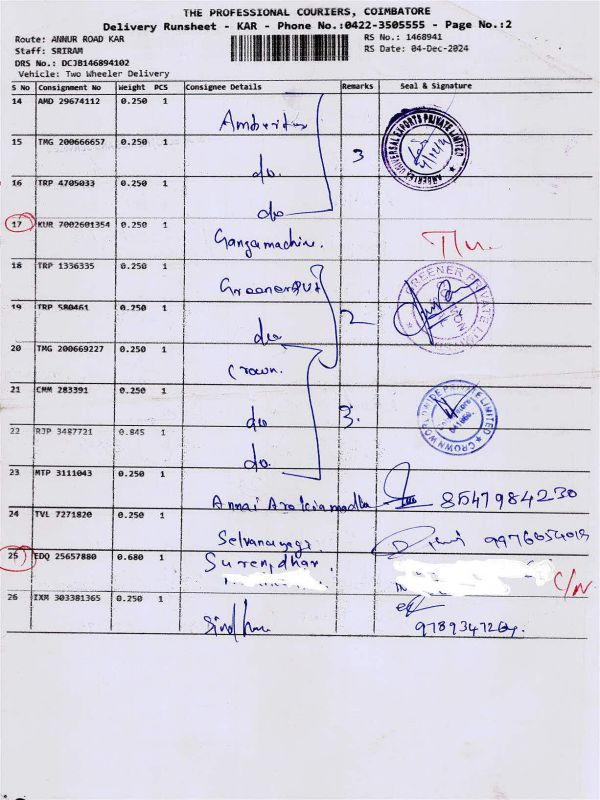 THE PROFESSIONAL COURIERS, COIMBATORE
Delivery Runsheet - KAR - Phone No.:0422-3505555 - Page No.:2
Route: ANNUR ROAD KAR
RS No.: 1468941
Staff: SRIRAM
RS Date: 04-Dec-2024
DRS No.: DCJB146894102
Vehicle: Two Wheeler Delivery
S No Consignment No Weight PCS Consignee Details Remarks Seal & Signature
14 AMD 29674112 0.250 1
15 TMG 200666657 0.250 1 do. 3
16 TRP 4705033 0.250 1 do
17 KUR 7002601354 0.250 1 Gangamachine.
18 TRP 1336335 0.250 1 Greener
19 TRP 580461 0.250 1 do 2
20 TMG 200669227 0.250 1 Crown.
21 CMM 283391 0.250 1 do 3.
22 RJP 3487721 0.845 1 do.
23 MTP 3111043 0.250 1 Annai 8547984230
24 TVL 7271820 0.250 1
25 EDQ 25657880 0.680 1 Surendhar. C/N
26 IXM 303381365 0.250 1